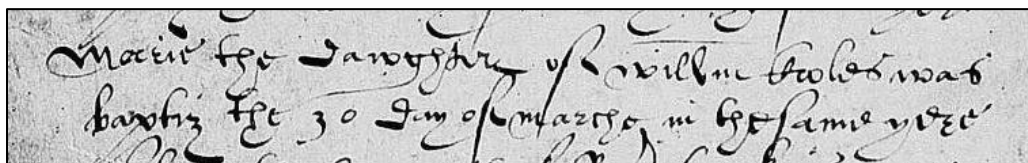 Marie the dawghter of willm was
baptiz the 30 day of marche in the same yere